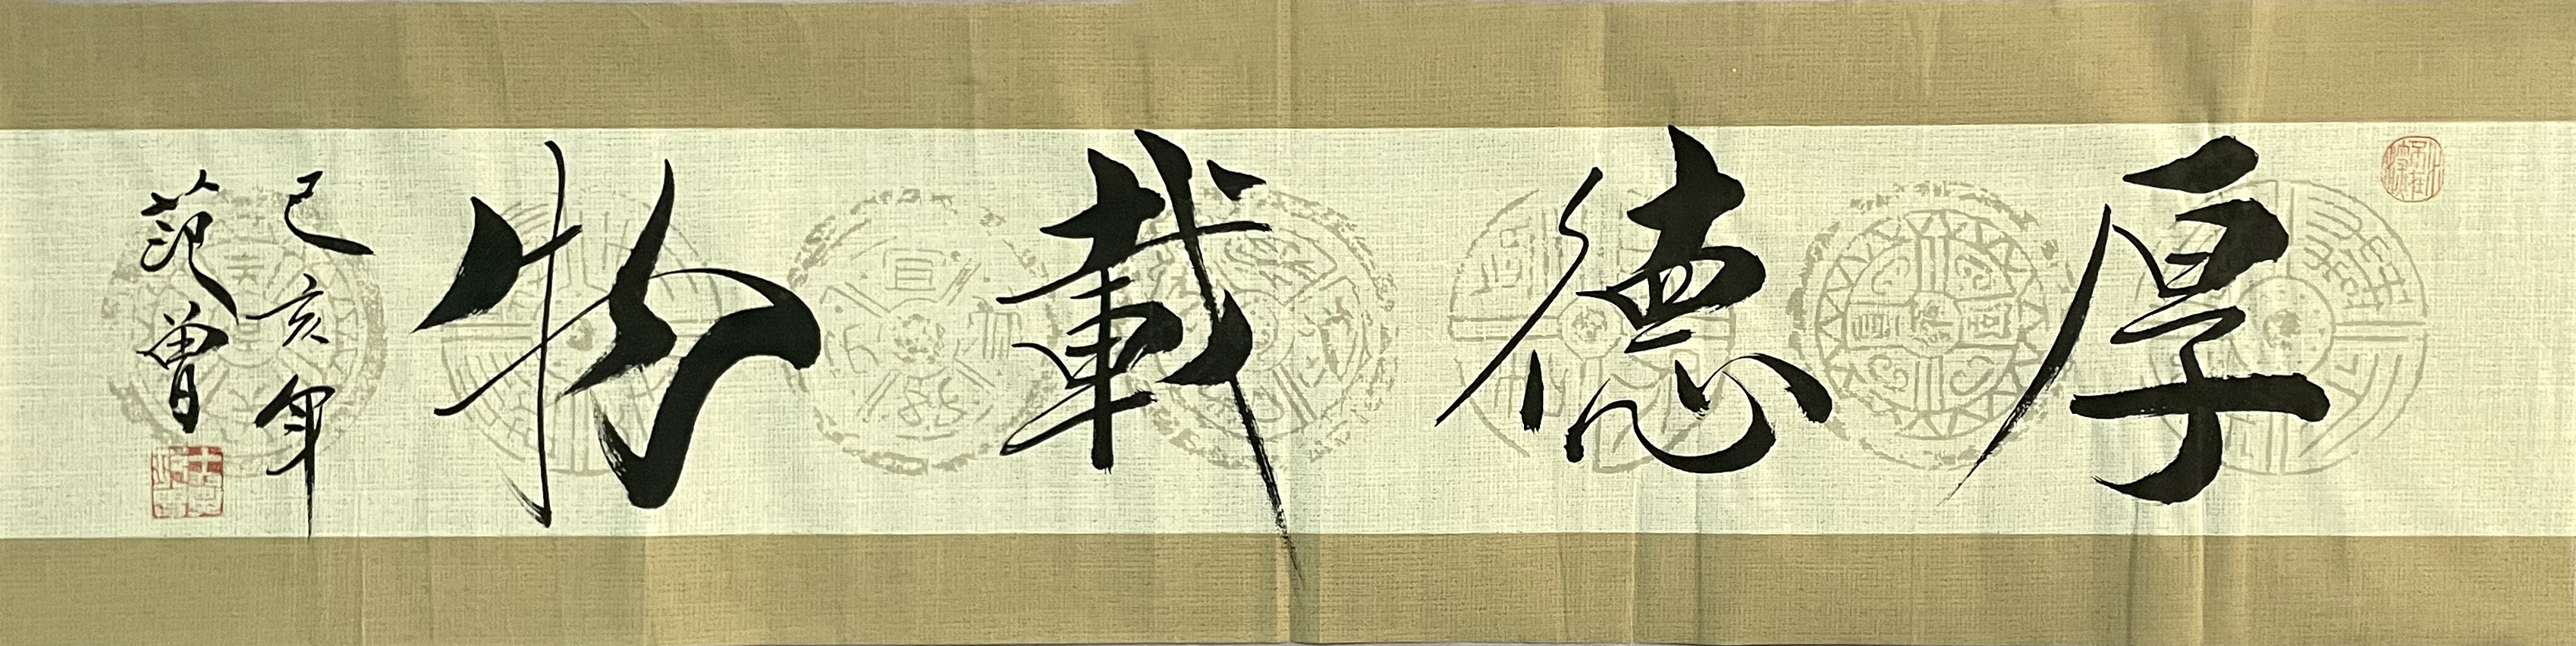 厚德載物
己亥年
范曾